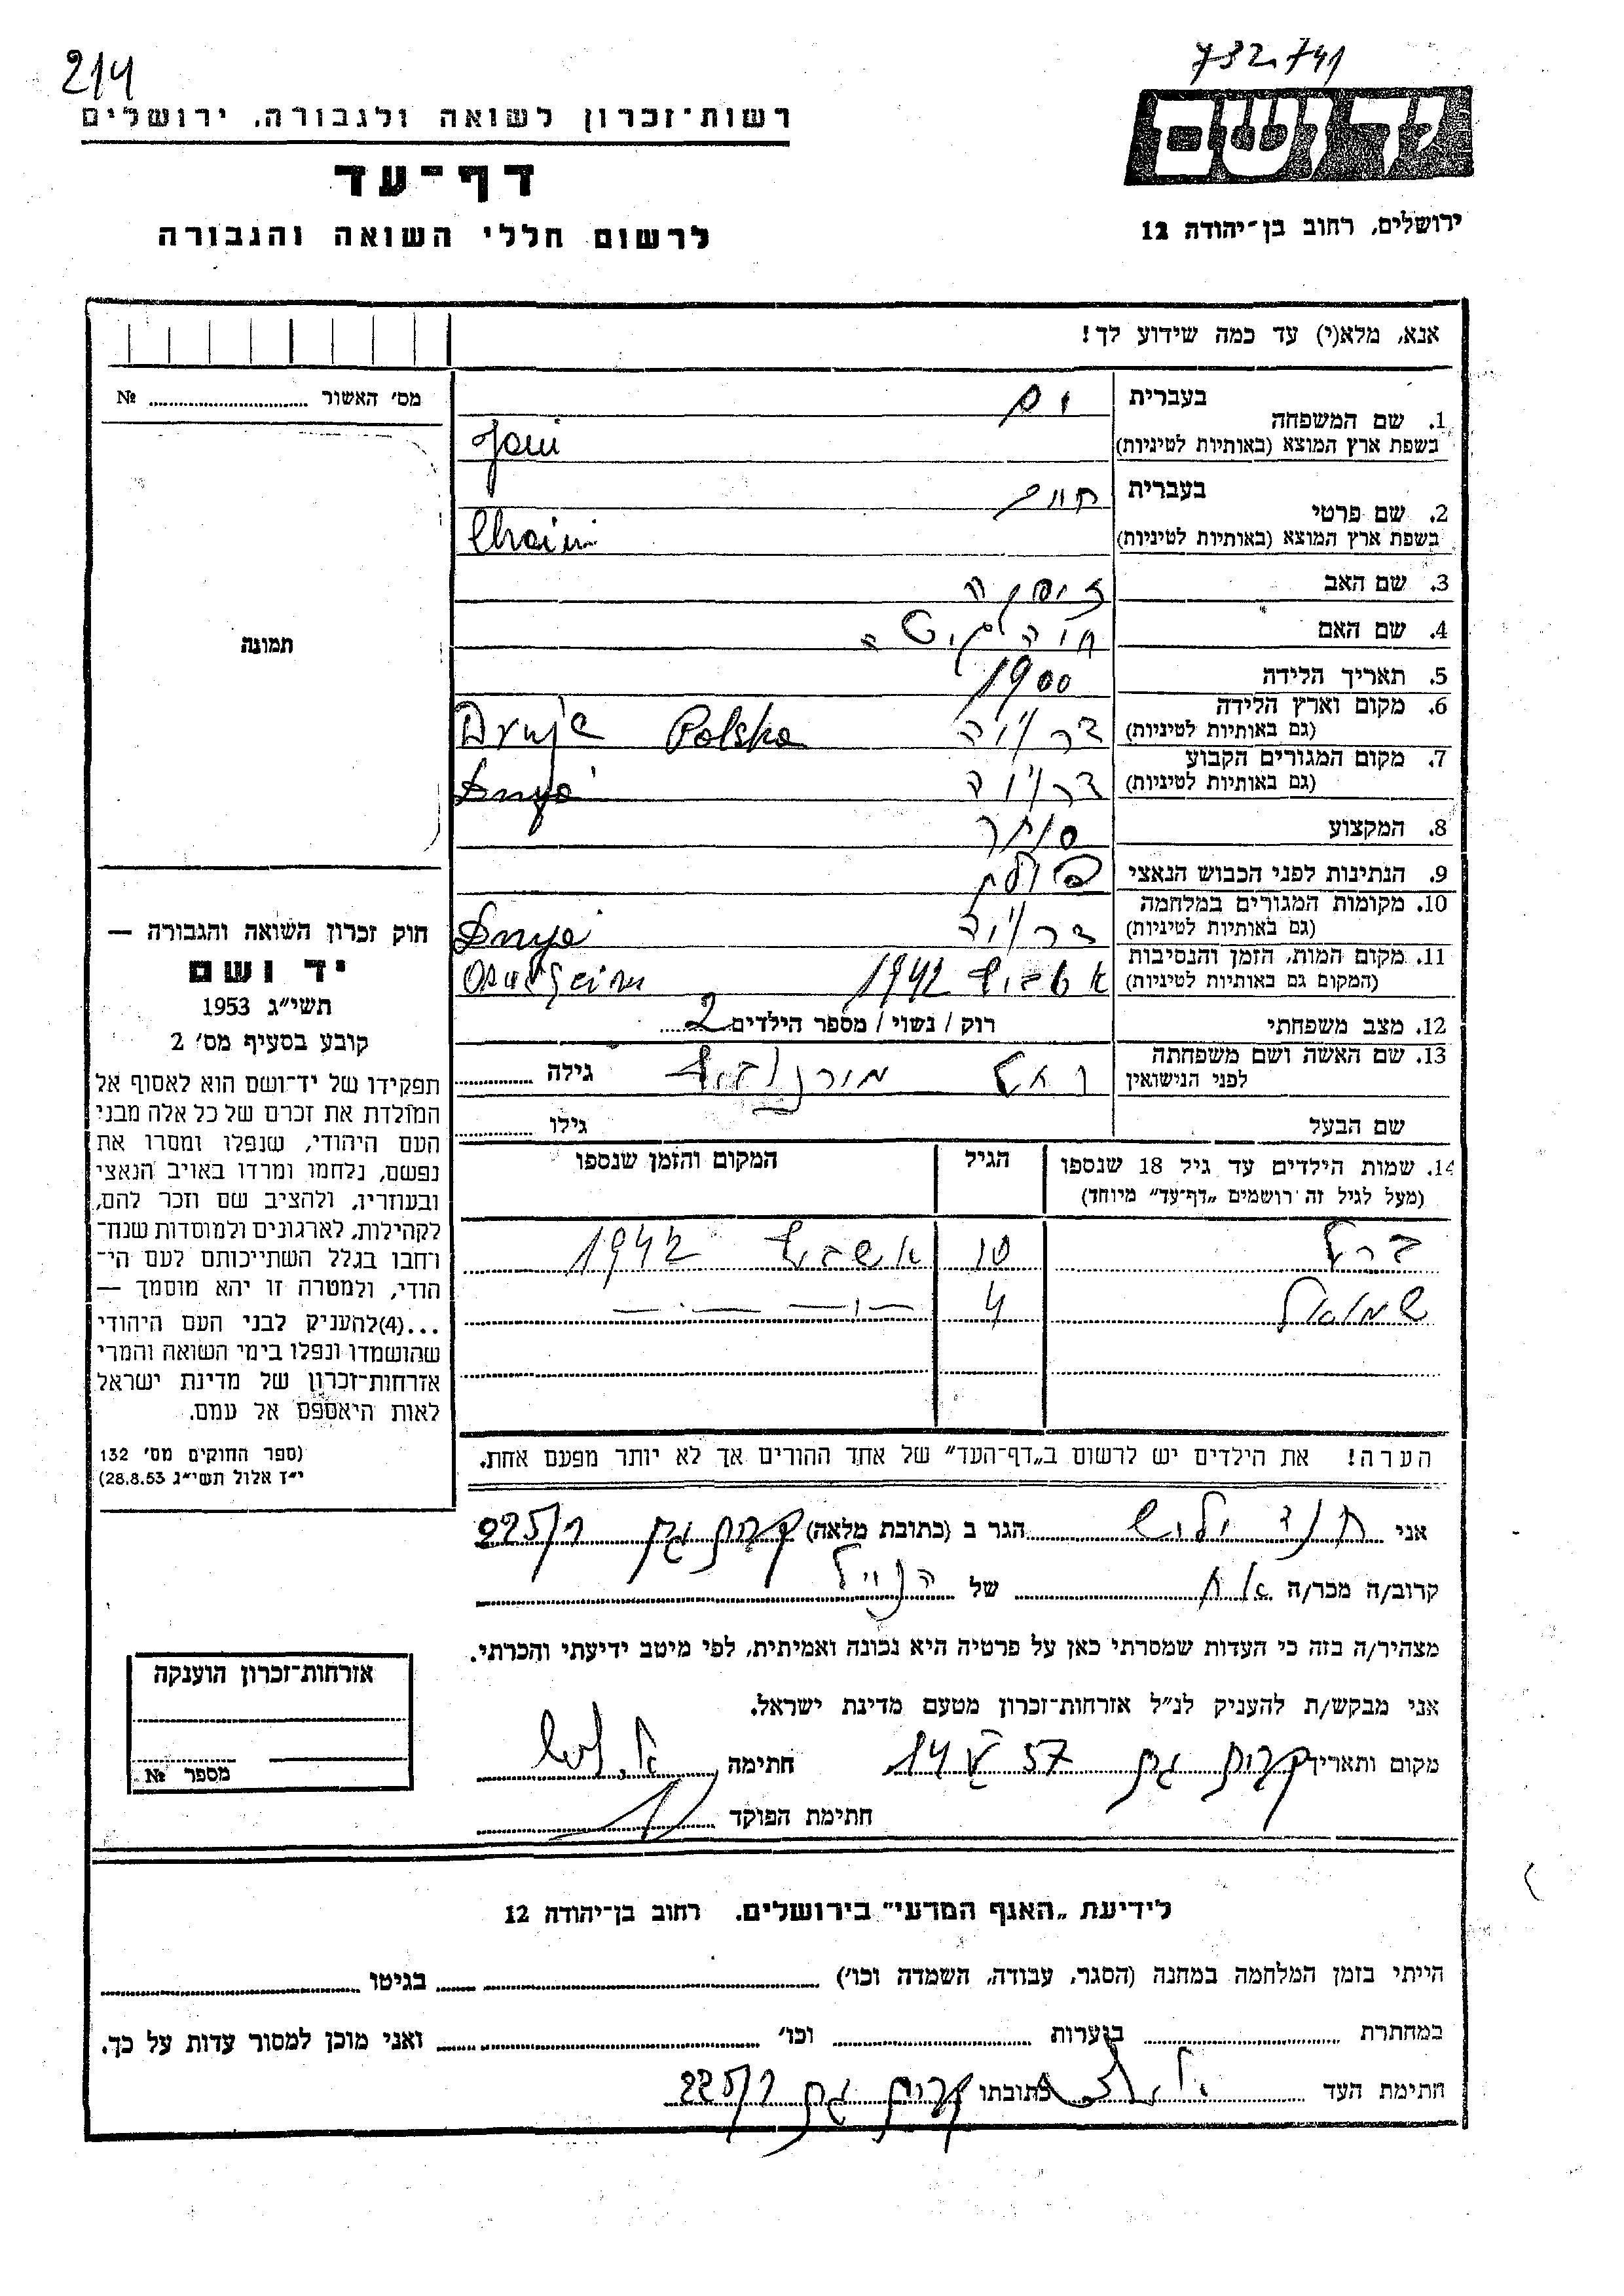 214
732.741
רשות־זכרון לשואה ולגבורה, ירושלים
יד ושם
דף־עד
לרשום חללי השואה והגבורה
ירושלים, רחוב בן־יהודה 12
אנא, מלא(י) עד כמה שידוע לך!
מס׳ האשור № 
1. שם המשפחה
בעברית ים
בשפת ארץ המוצא (באותיות לטיניות) Jam
2. שם פרטי
בעברית חיים
בשפת ארץ המוצא (באותיות לטיניות) Chaim
3. שם האב
4. שם האם
תמונה
5. תאריך הלידה 1900
6. מקום וארץ הלידה
(גם באותיות לטיניות) דרויה Druja Polska
7. מקום המגורים הקבוע
(גם באותיות לטיניות) דרויה
8. המקצוע סוחר
9. הנתינות לפני הכבוש הנאצי
10. מקומות המגורים במלחמה
(גם באותיות לטיניות) דרויה
11. מקום המות, הזמן והנסיבות
(המקום גם באותיות לטיניות) 1942
12. מצב משפחתי רוק / נשוי / מספר הילדים 2
13. שם האשה ושם משפחתה
לפני הנישואין גילה
שם הבעל גילו
14. שמות הילדים עד גיל 18 שנספו
(מעל לגיל זה רושמים „דף־עד״ מיוחד)
הגיל
המקום והזמן שנספו
10 1942
שמואל 4 — " — " —
הערה! את הילדים יש לרשום ב„דף־העד״ של אחד ההורים אך לא יותר מפעם אחת.
חוק זכרון השואה והגבורה —
יד ושם
תשי״ג 1953
קובע בסעיף מס׳ 2
תפקידו של יד־ושם הוא לאסוף אל
המולדת את זכרם של כל אלה מבני
העם היהודי, שנפלו ומסרו את
נפשם, נלחמו ומרדו באויב הנאצי
ובעוזריו, ולהציב שם וזכר להם,
לקהילות, לארגונים ולמוסדות שנח־
רחבו בגלל השתייכותם לעם הי־
הודי, ולמטרה זו יהא מוסמך —
...(4)להעניק לבני העם היהודי
שהושמדו ונפלו בימי השואה והמרי
אזרחות־זכרון של מדינת ישראל
לאות היאספם אל עמם.
(ספר החוקים מס׳ 132
י״ז אלול תשי״ג 28.8.53)
אני הגר ב (כתובת מלאה) קרית גת 225/1
קרוב/ה מכר/ה אח של הנ״ל
מצהיר/ה בזה כי העדות שמסרתי כאן על פרטיה היא נכונה ואמיתית, לפי מיטב ידיעתי והכרתי.
אני מבקש/ת להעניק לנ״ל אזרחות־זכרון מטעם מדינת ישראל.
מקום ותאריך קרית גת 14 V 57 חתימה
חתימת הפוקד
אזרחות־זכרון הוענקה
מספר №
לידיעת „האגף המדעי״ בירושלים, רחוב בן־יהודה 12
הייתי בזמן המלחמה במחנה (הסגר, עבודה, השמדה וכו׳) בגיטו
במחתרת ביערות וכו׳ ואני מוכן למסור עדות על כך.
חתימת העד כתובתו קרית גת 225/1